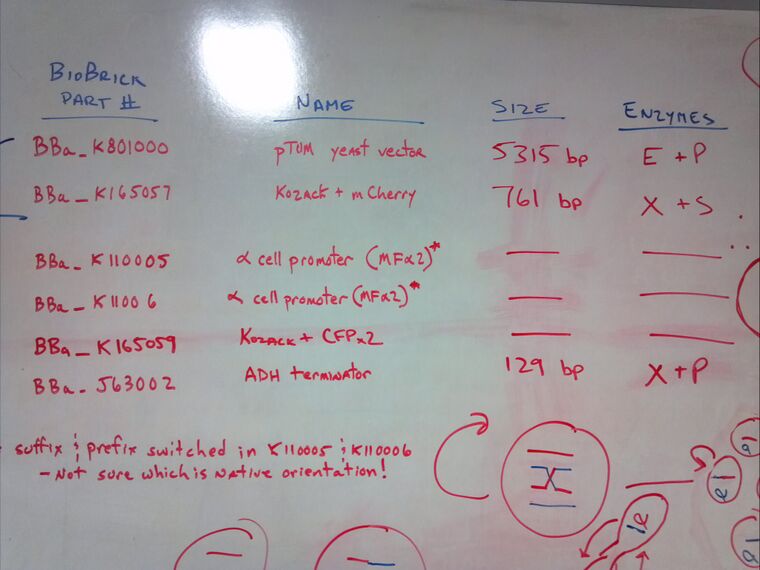 BIOBRICK PART # NAME SIZE ENZYMES
BBa_K801000 pTUM yeast vector 5315 bp E + P
BBa_K165057 Kozack + mCherry 761 bp X + S
BBa_K110005 α cell promoter (MFα2)* — —
BBa_K11006 α cell promoter (MFα2)* — —
BBa_K165059 Kozack + CFPx2 — —
BBa_J63002 ADH terminator 129 bp X + P
suffix & prefix switched in K110005 & K110006
- Not sure which is NATIVE orientation!